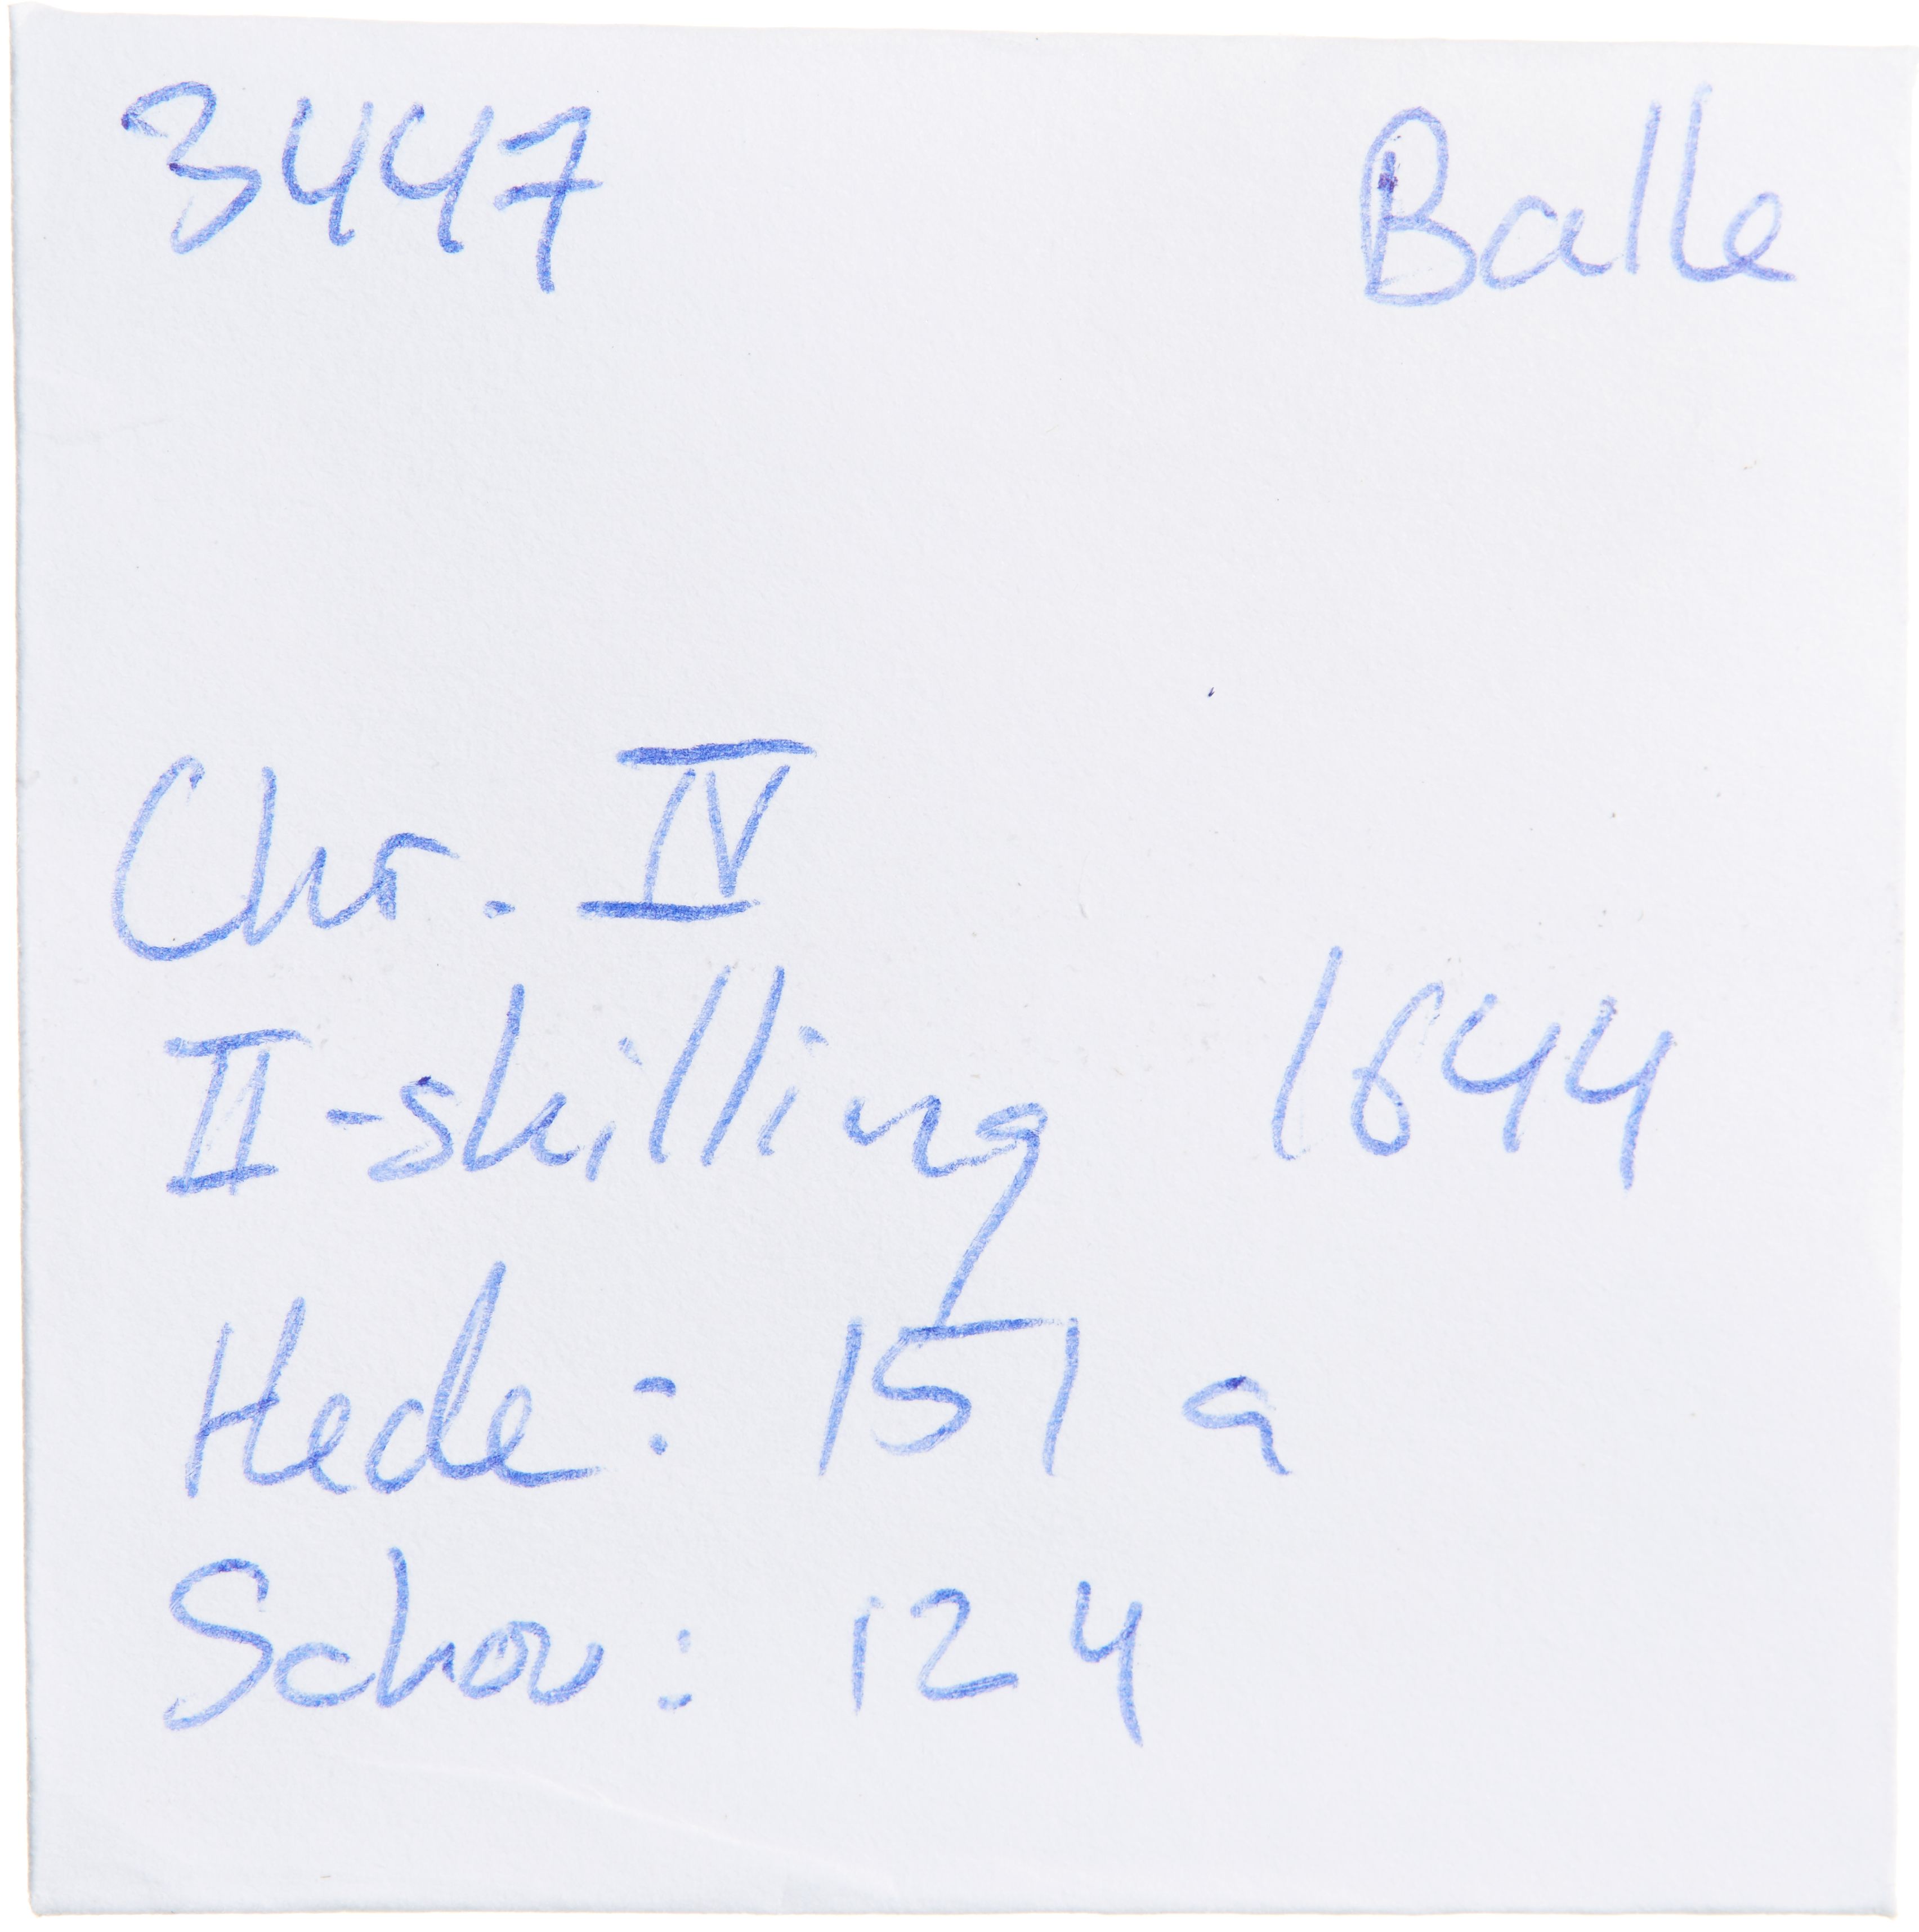 3447 Balle
Chr. IV
II-skilling 1644
Hede: 151 a
Schou: 124